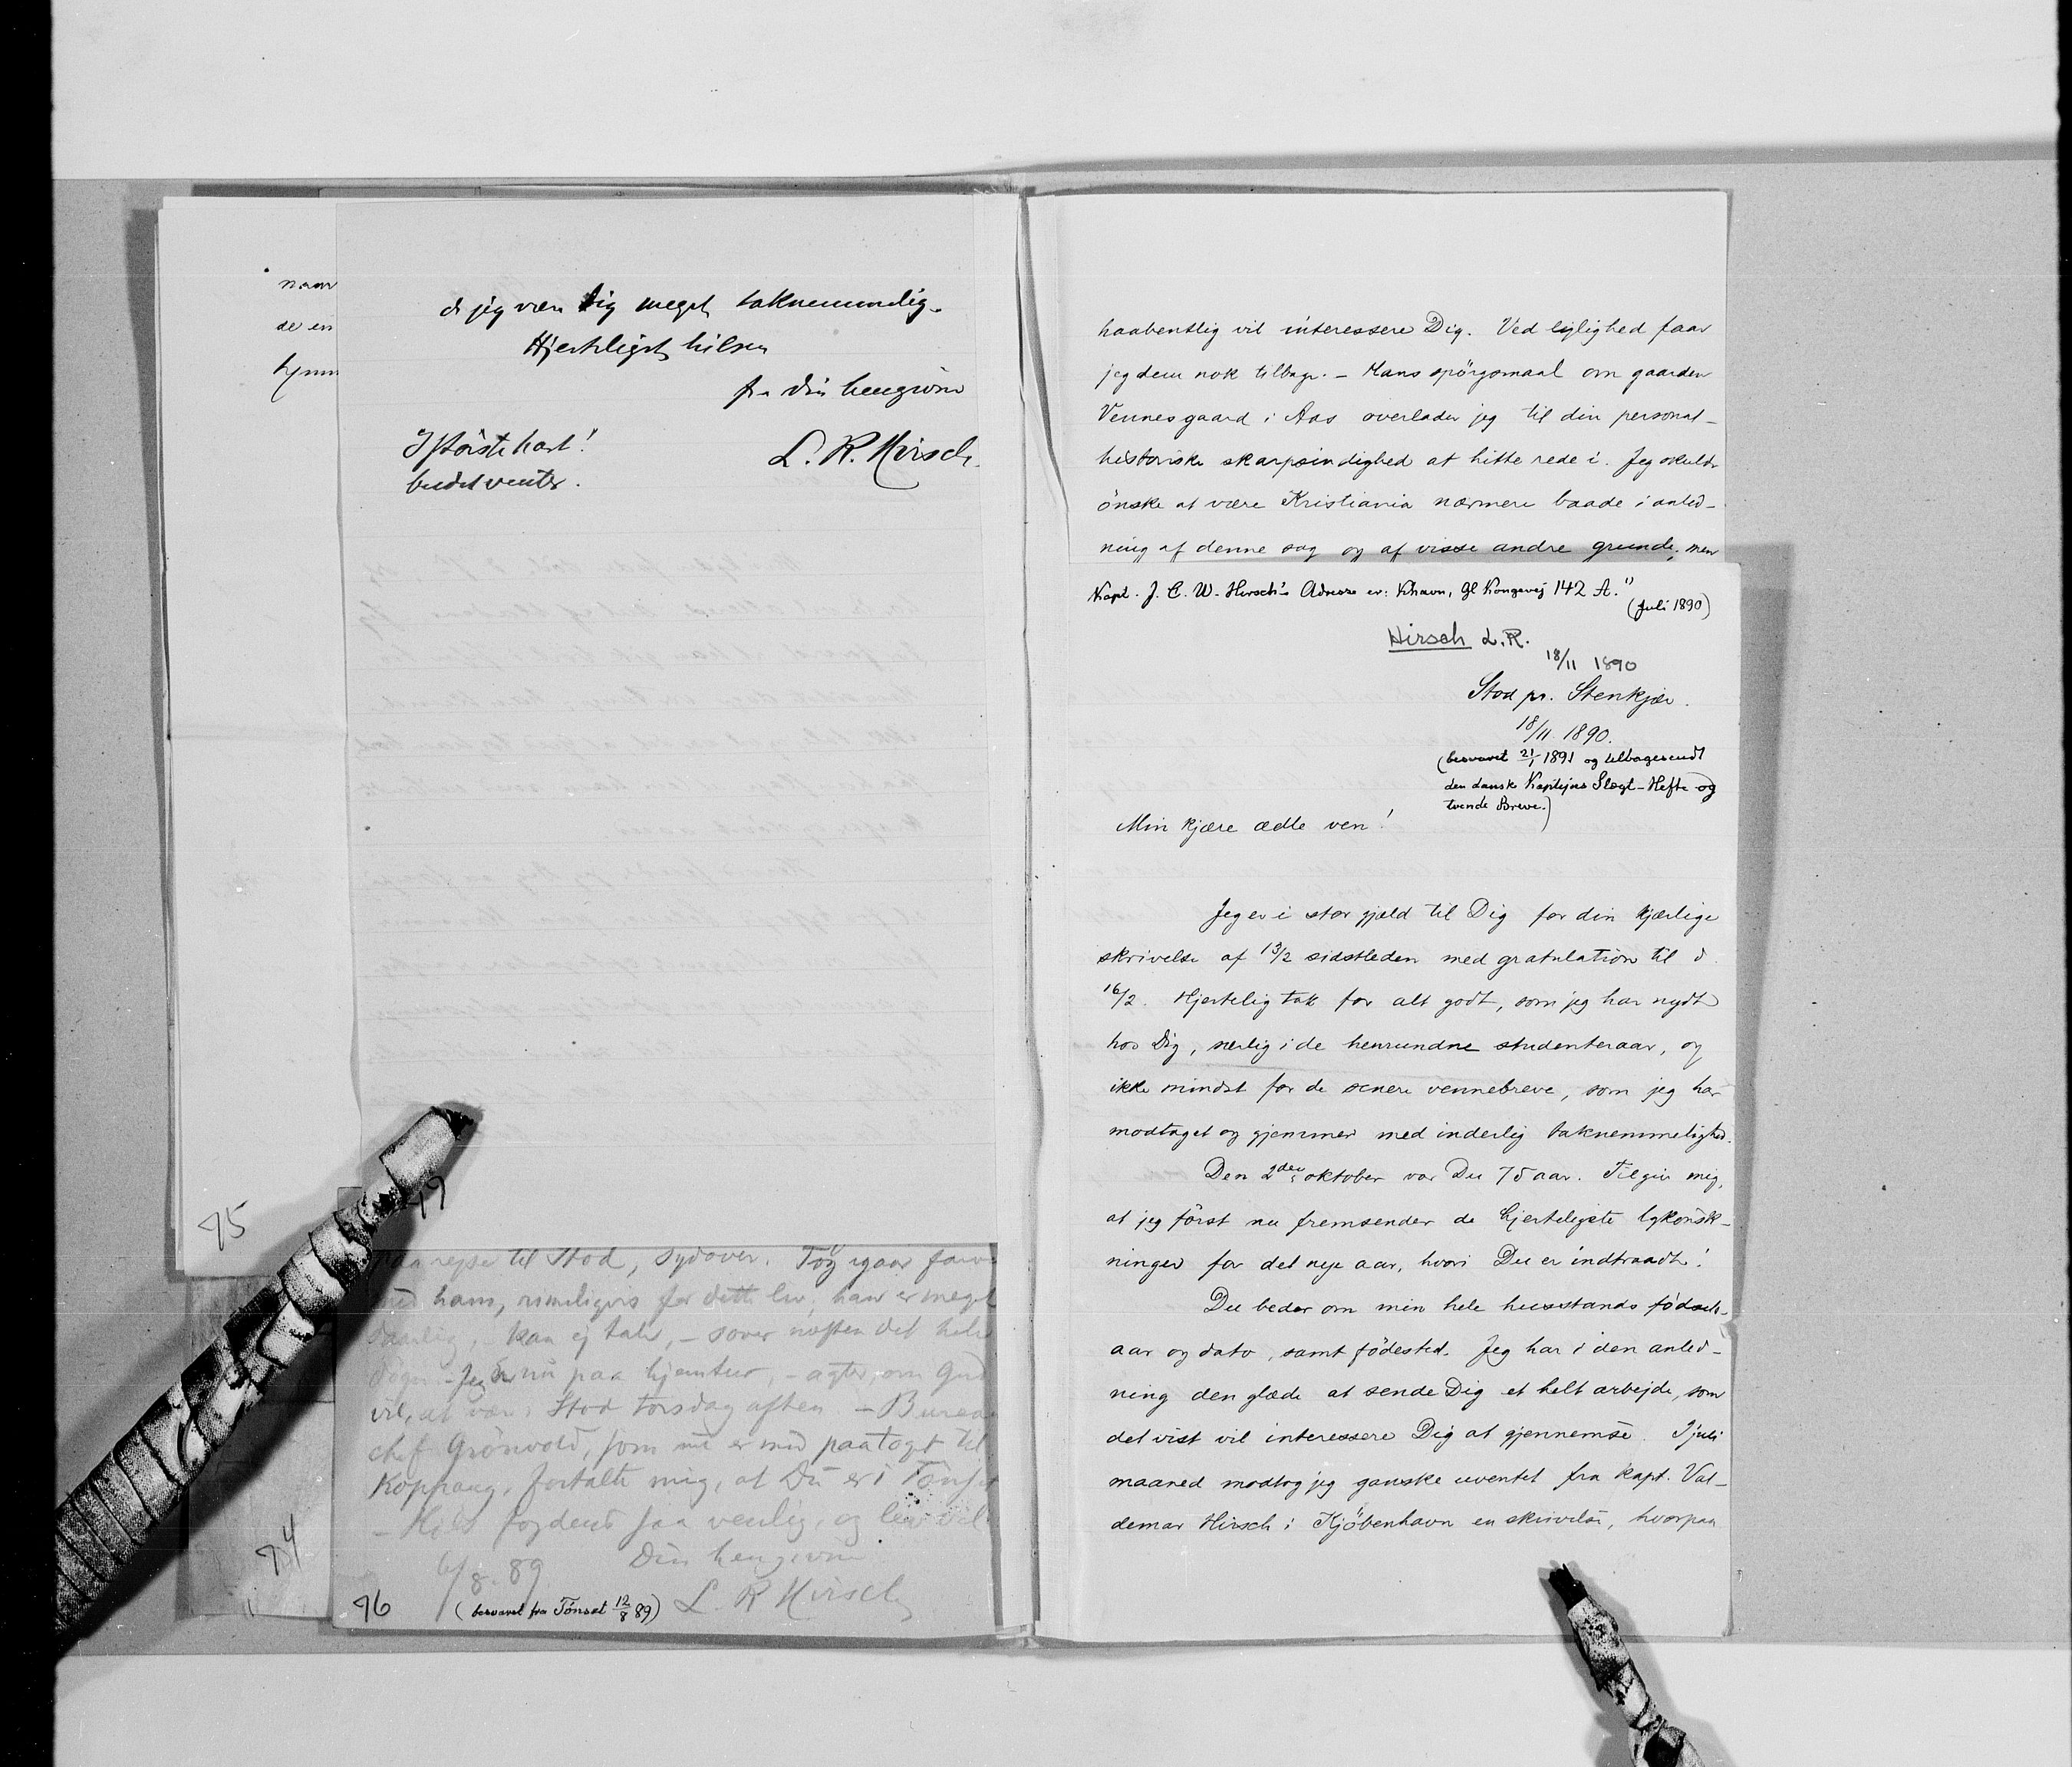 naar
de en
hjem
jeg være Dig meget taknemmelig.
Hjerteligst hilsen
fra din hengivne
I störste hast!
budet venter.
L. R. Hirsch.
75
paa rejse til Stod, sydover. Tog igaar farvel
med ham, rimeligvis for dette liv; han er meget
daarlig, kan ej tale, – sover næsten det hele
döger. Jeg er nu paa hjemtur, – agter, om Gud
vil, at være i Stod torsdag aften – Bureau
chef Grönvold, som nu er med paatoget til
Koppang, fortalte mig, at Du er i Tönset
– Hils fogdens saa venlig, og lev vel
Din hengivne
6/8. 89
L. R Hirsch
(besvaret fra Tönset 12/8 89)
76
74
haabentlig vil interessere Dig. Ved lejlighed faar
jeg dem nok tilbage. – Hans spörgsmaal om gaarden
Vennesgaard i Aas overlader jeg til din personal-
historiske skarpsindighed at hitte rede i. Jeg skulde
önske at være Kristiania nærmere baade i anled-
ning af denne sag og af visse andre grunde, men
Kapt. J. C. W. Hirsch's Adresse er: Khavn, Gl Kongevej 142 A."
(Juli 1890)
Hirsch L.R.
18/11 1890
Stod pr. Stenkjær.
18/11 1890.
(besvaret 21/1 1891 og tilbagesendt
den danske Kaptejns Slægt-Hefte og
tvende Breve.)
Min kjære ædle ven!
Jeg er i stor gjæld til Dig for din kjærlige
skrivelse af 13/2 sidstleden med gratulation til d.
16/2. Hjertelig tak for alt godt, som jeg har nydt
hos Dig, særlig i de henrundne studenteraar, og
ikke mindst for de senere vennebreve, som jeg har
modtaget og gjemmer med inderlig taknemmelighed.
Den 2den oktober var Du 75 aar. Tilgiv mig,
at jeg först nu fremsender de hjerteligste lykönsk-
ninger for det nye aar, hvori Du er indtraadt!
Du beder om min hele husstands födsels-
aar og dato, samt födested. Jeg har i den anled-
ning den glæde at sende Dig et helt arbejde, som
det vist vil interessere Dig at gjennemse. I juli
maaned modtog jeg ganske uventet fra kapt. Val-
demar Hirsch i Kjöbenhavn en skrivelse, hvorpaa